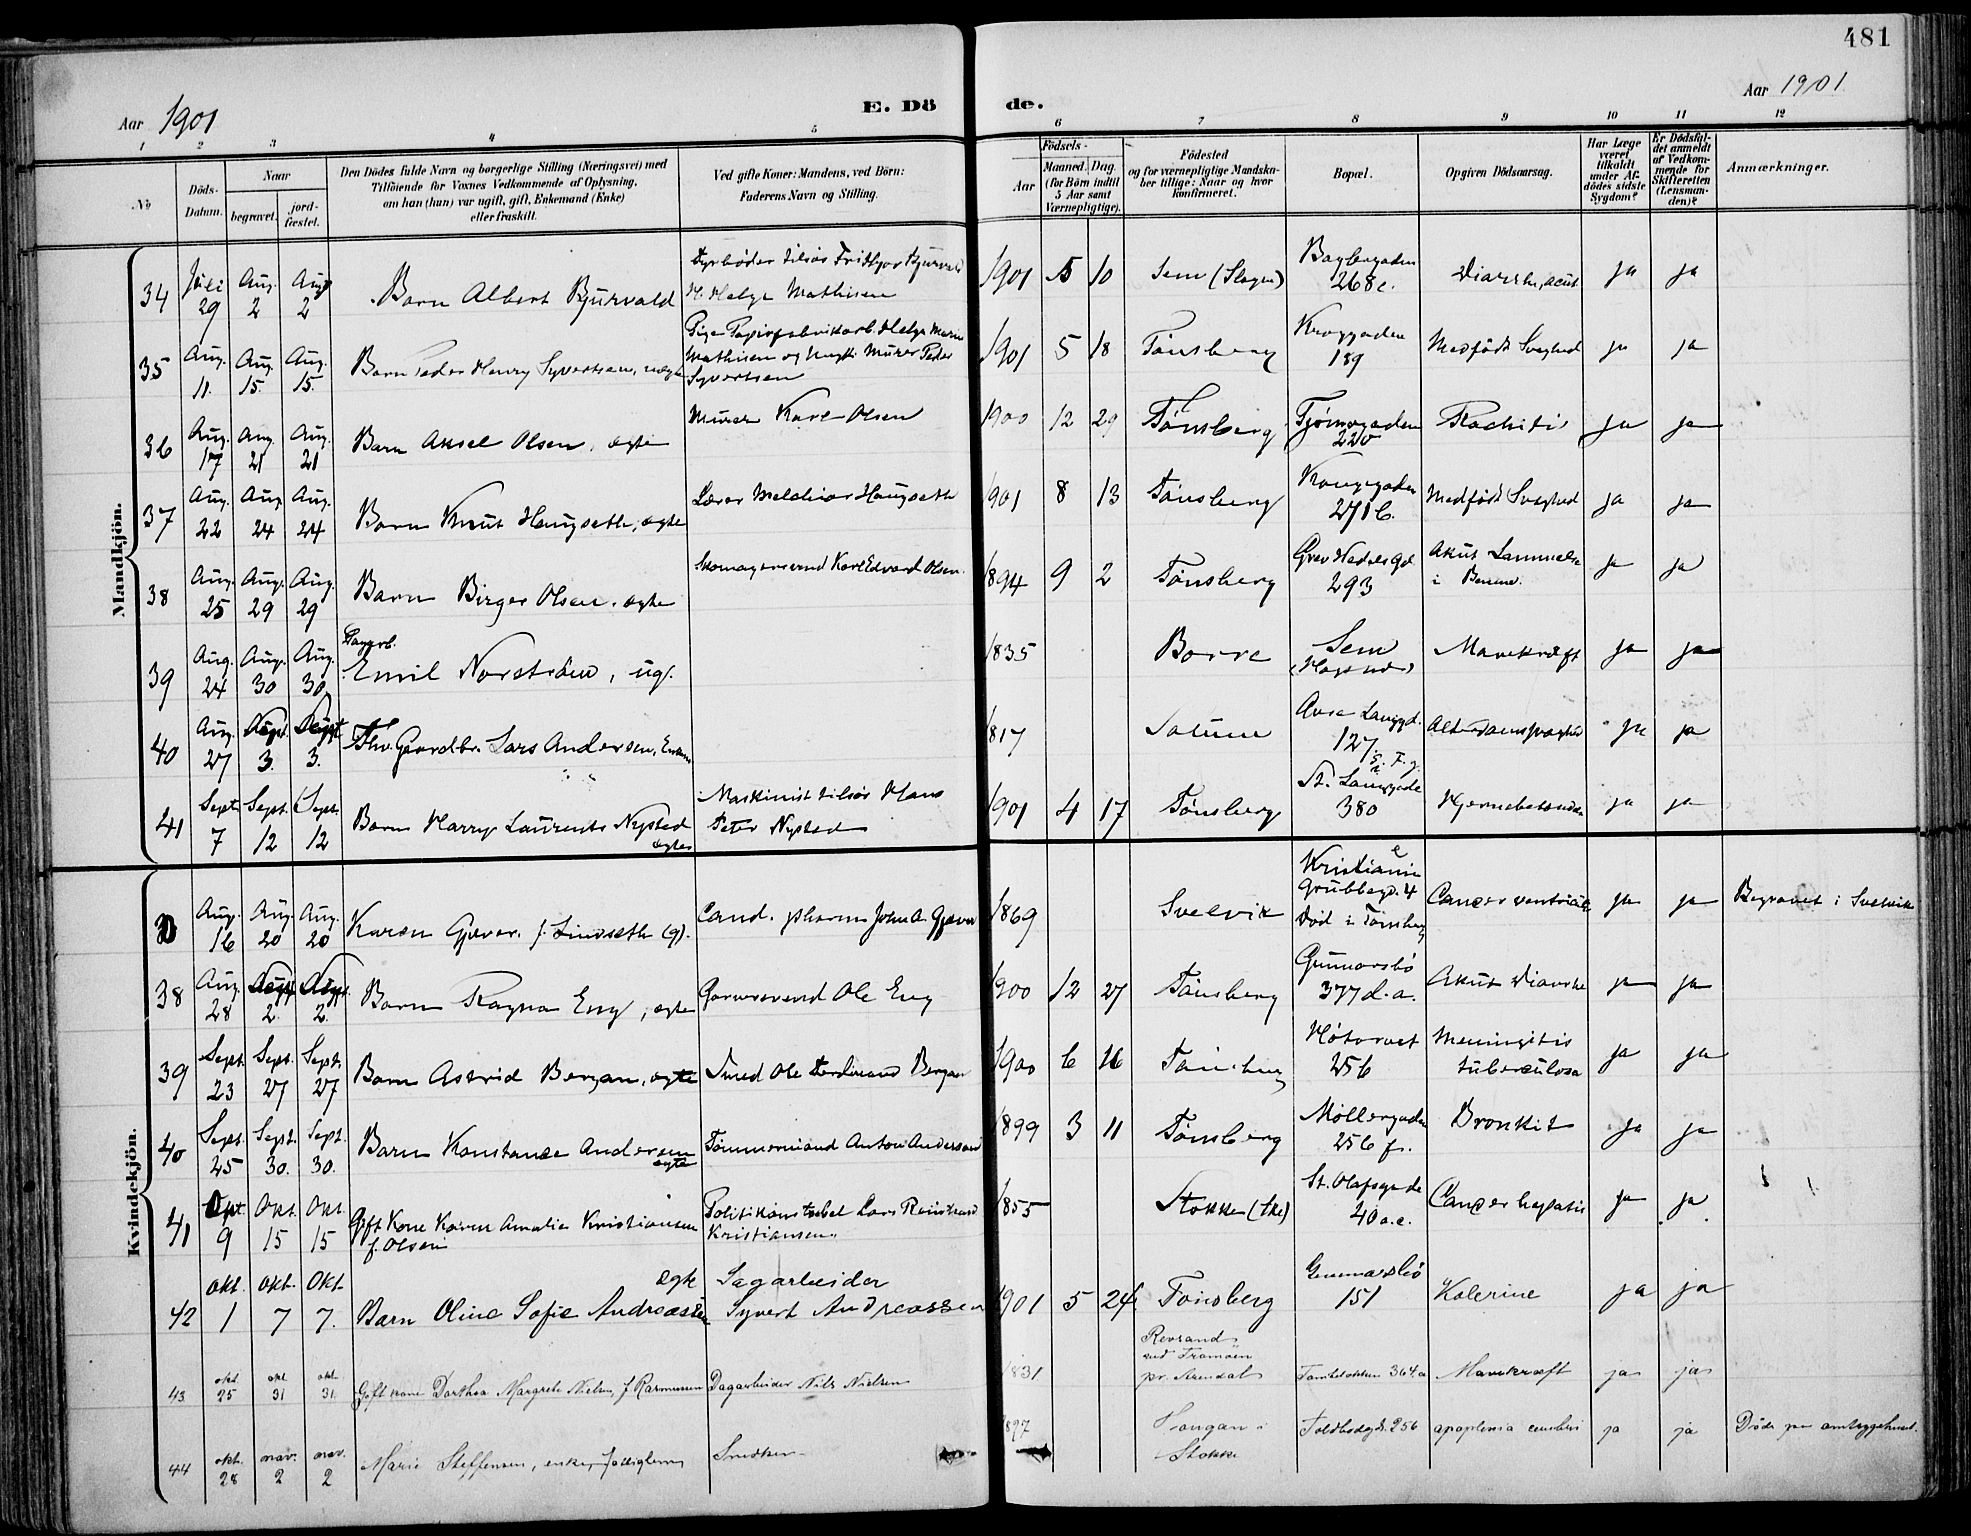 481
Aar 1901
E. Dö de.
Aar 1901
1 2 3 4 5 6 7 8 9 10 11 12
No
Döds-Datum.
Naar
begravet.
jord-fæstet.
Den Dödes fulde Navn og borgerlige Stilling (Næringsvei) med
Tilföiende for Voxnes Vedkommende af Oplysning,
om han (hun) var ugift, gift, Enkemand (Enke)
eller fraskilt.
Ved gifte Koner: Mandens, ved Börn:
Faderens Navn og Stilling.
Födsels-
Aar
Maaned. Dag.
(for Börn indtil
5 Aar samt
Værnepligtige).
Födested
og for værnepligtige Mandska-
ber tillige: Naar og hvor
konfirmeret.
Bopæl.
Opgiven Dödsaarsag.
Har Læge
været
tilkaldt
under Af-
dödes sidste
Sygdom?
Er Dödsfal-
det anmeldt
af Vedkom-
mende for
Skifteretten
(Lensman-
den)?
Anmærkninger.
Mandkjön.
34 Juli 29 Aug. 2 Aug. 2 Barn Albert Bjurvald
H. Helga Mathisen
1901 5 10 Sem (Slagn) 268c. Diarrhe, acut ja ja
35 Aug. 11. Aug. 15. Aug. 15. Barn Peder Henry Syvertsen, uægte
Pige Papirfabrikarb. Helga Marie
Mathisen og Ungk. Murer Peder
Syvertsen
1901 5 18 Tønsberg 189 Medfødt Svaghed ja ja
36 Aug. 17 Aug. 21 Aug. 21 Barn Aksel Olsen, ægte
Murer Karl Olsen
1900 12 29 Tønsberg Tjømegaden 220 Rachitis ja ja
37 Aug. 22 Aug. 24 Aug. 24 Barn Knut Haugseth, ægte
Lærer Melchior Haugseth
1901 8 13 Tønsberg 271 b. Medfødt Svaghed ja ja
38 Aug. 25 Aug. 29 Aug. 29 Barn Birger Olsen, ægte
Skomagersvend Karl Edvard Olsen
1894 9 2 Tønsberg Grev Wedels Gd. 293 Akut Lammelse
i Benene. ja ja
39 Aug. 24 Aug. 30 Aug. 30 Emil Norström, ug.
1835 Borre Sem Mavekræft ja ja
40 Aug. 27 Sept. 3. Sept. 3. Fhv. Gaardbr. Lars Andersen, Enkem.
1817 127. ja ja
41 Sept. 7 Sept. 12 Sept. 12 Barn Harry Laurents Nysted
ægte
Maskinist tilsøs Hans
Peter Nysted
1901 4 17 Tønsberg St. Langgade 380 Hjernebetændelse ja ja
Kvindekjön.
Aug. 16 Aug. 20 Aug. 20 Karen Gjæver f. Lindseth (g).
Cand. pharm John A. Gjæver
1869 Svelvik Kristiania
Grubbegd. 4
Død i Tønsberg
Cancer ventriculi ja ja Begravet i Svelvik
38 Aug. 28 Sept. 2. Sept. 2. Barn Ragna Eng, ægte
Garversvend Ole Eng
1900 12 27 Tønsberg Gunnarsbø 377 d.a. Akut Diarrhe ja ja
39 Sept. 23 Sept. 27 Sept. 27 Barn Astrid Bergan, ægte
Smed Ole Ferdinand Bergan
1900 6 16 Tønsberg Høtorvet 256 Meningitis
tuberculosa ja ja
40 Sept. 25 Sept. 30. Sept. 30. Barn Konstance Andersen
ægte
Tømmermand Anton Anderssen
1899 3 11 Tønsberg Møllergaden 256 f. Bronkit ja ja
41 Okt. 9 Okt. 15 Okt. 15 Gift Kone Karen Amalie Kristiansen
f. Olsen
Politikonstabel Lars
Kristiansen.
1855 Stokke St. Olafsgade 40 a.c. Cancer hepatis ja ja
42 okt. 1 okt. 7 Okt. 7. Barn Oline Sofie Andreassen
ægte
Sagarbeider
Syvert Andreassen
1901 5 24 Tønsberg Gunnarsbø 151 Kolerine ja ja
43 okt 25 okt 31 okt. 31. Gift kone Dorthea Margrete Nielsen, f Rasmussen
Dagarbeider Nils Nielsen
1831 Revsand
ved Tromöen
pr. Arendal
364.a Mavekræft ja ja
44 okt. 28 nov. 2 nov. 2 Marie Steffensen, enke, fattiglem
Snedker
Haugan i
Stokke
Toldbodgd. 256 apoplexia cerebri ja ja Døde paa